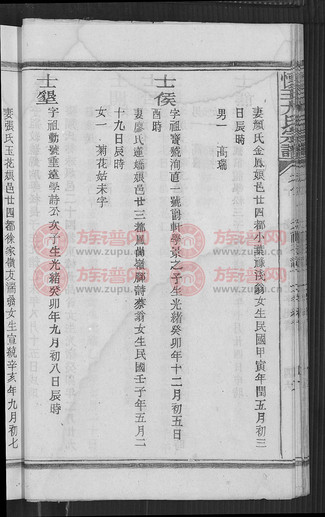 妻顏氏金鳳娘邑廿四都小葉 法翁女生民國甲寅年閏五月初三
日辰時
男一 高瑞
士侯
字祖寶號洵直一號爵輯學 之子生光緒癸卯年十二月初五日
酉時
妻廖氏蓮嬌娘邑廿三都 詩蔡翁女生民國壬子年五月二
十九日辰時
女一 菊花姑未字
士墾
字祖勳號垂遠學詩公次子生光緒癸卯年九月初八日辰時
妻張氏玉花娘邑廿四都徐家 友 翁女生宣統辛亥年九月初七
族譜网
www.zupu.cn